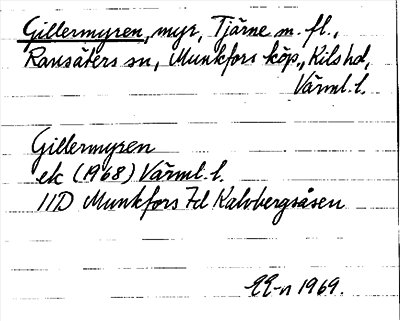 Gillermyren, myr, Tjärne m. fl.,
Ransäters sn, Munkfors köp., Kils hd,
Värml. l.
Gillermyren
ek (1968) Värml. l.
11D Munkfors 7d Kalvbergsåsen
1969.